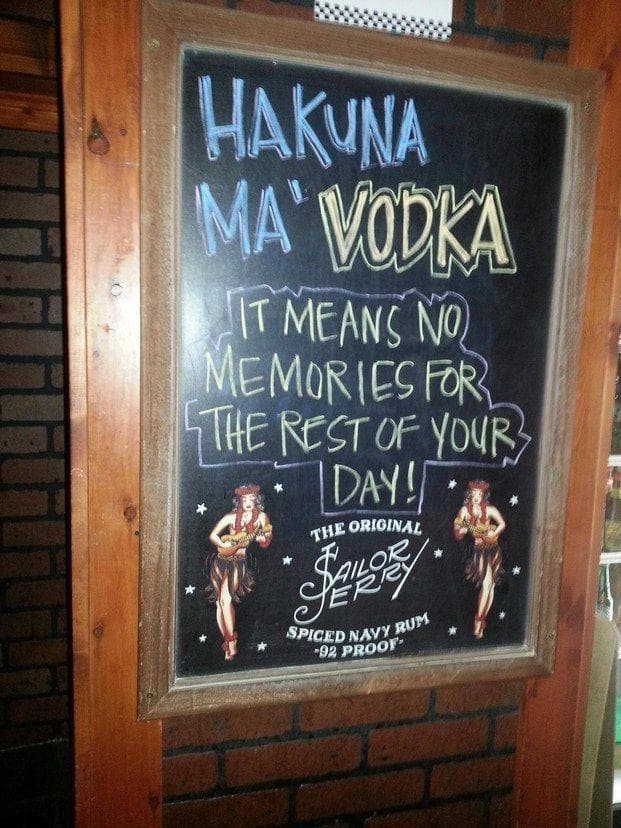 HAKUNA
MA' VODKA
IT MEANS NO
MEMORIES FOR
THE REST OF YOUR
DAY!
THE ORIGINAL
SAILOR
JERRY
SPICED NAVY RUM
-92 PROOF-